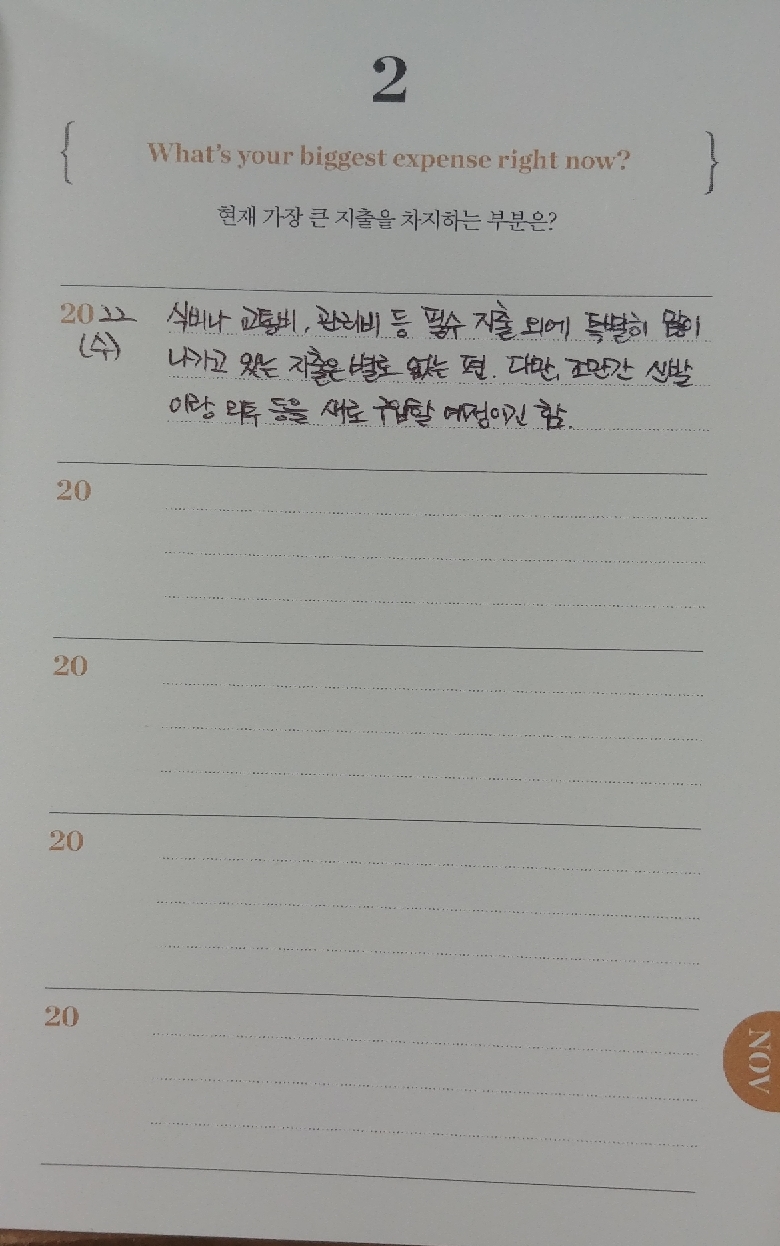 2
What's your biggest expense right now?
현재 가장 큰 지출을 차지하는 부분은?
2022 식비나 교통비, 관리비 등 필수 지출 외에 특별히 많이
(수) 나가고 있는 지출은 별로 없는 편. 다만, 조만간 신발
이랑 외투 등을 새로 구입할 예정이긴 함.
20
20
20
20
NOV